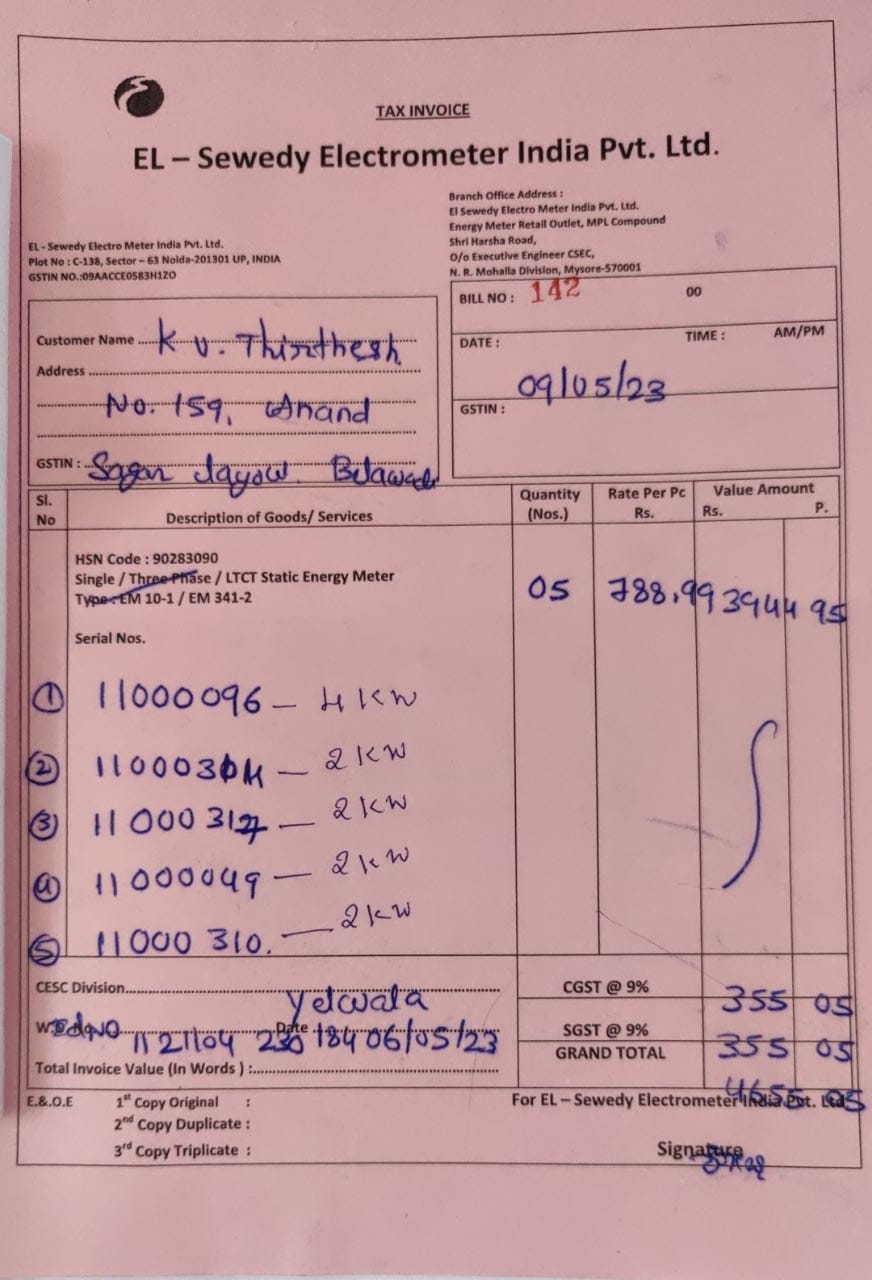 TAX INVOICE
EL – Sewedy Electrometer India Pvt. Ltd.
EL - Sewedy Electro Meter India Pvt. Ltd.
Plot No : C-138, Sector – 63 Noida-201301 UP, INDIA
GSTIN NO.:09AACCE0583H1ZO
Branch Office Address :
El Sewedy Electro Meter India Pvt. Ltd.
Energy Meter Retail Outlet, MPL Compound
Shri Harsha Road,
O/o Executive Engineer CSEC,
N. R. Mohalla Division, Mysore-570001
BILL NO : 142 00
DATE : TIME : AM/PM
09/05/23
GSTIN :
Customer Name K V. Thirthesh
Address
No. 159, Anand
GSTIN : Sagar
Sl. No Description of Goods/ Services Quantity (Nos.) Rate Per Pc Rs. Value Amount Rs. P.
HSN Code : 90283090
Single / Three Phase / LTCT Static Energy Meter
Type : EM 10-1 / EM 341-2
05 788.99 3944 95
Serial Nos.
1 11000096 – 4 KW
2 – 2 KW
3 – 2 KW
4 11000049 – 2 KW
5 11000310. – 2 KW
CESC Division Yelwala
CGST @ 9% 355 05
Date 06/05/23
SGST @ 9% 355 05
GRAND TOTAL 4655 05
Total Invoice Value (In Words ) :
E.&.O.E 1st Copy Original :
2nd Copy Duplicate :
3rd Copy Triplicate :
For EL – Sewedy Electrometer India Pvt. Ltd
Signature